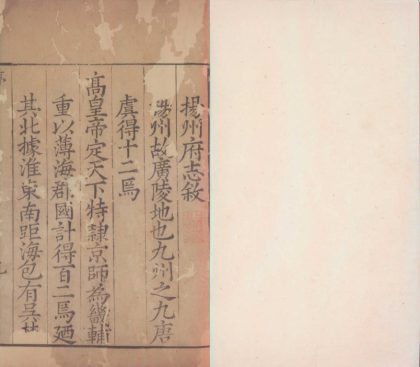 揚州府志敘
揚州故廣陵地也九州之九唐
虞得十二焉
高皇帝定天下特隸京師為畿輔
重以薄海郡國計得百二焉廼
其北據淮東南距海包有吳